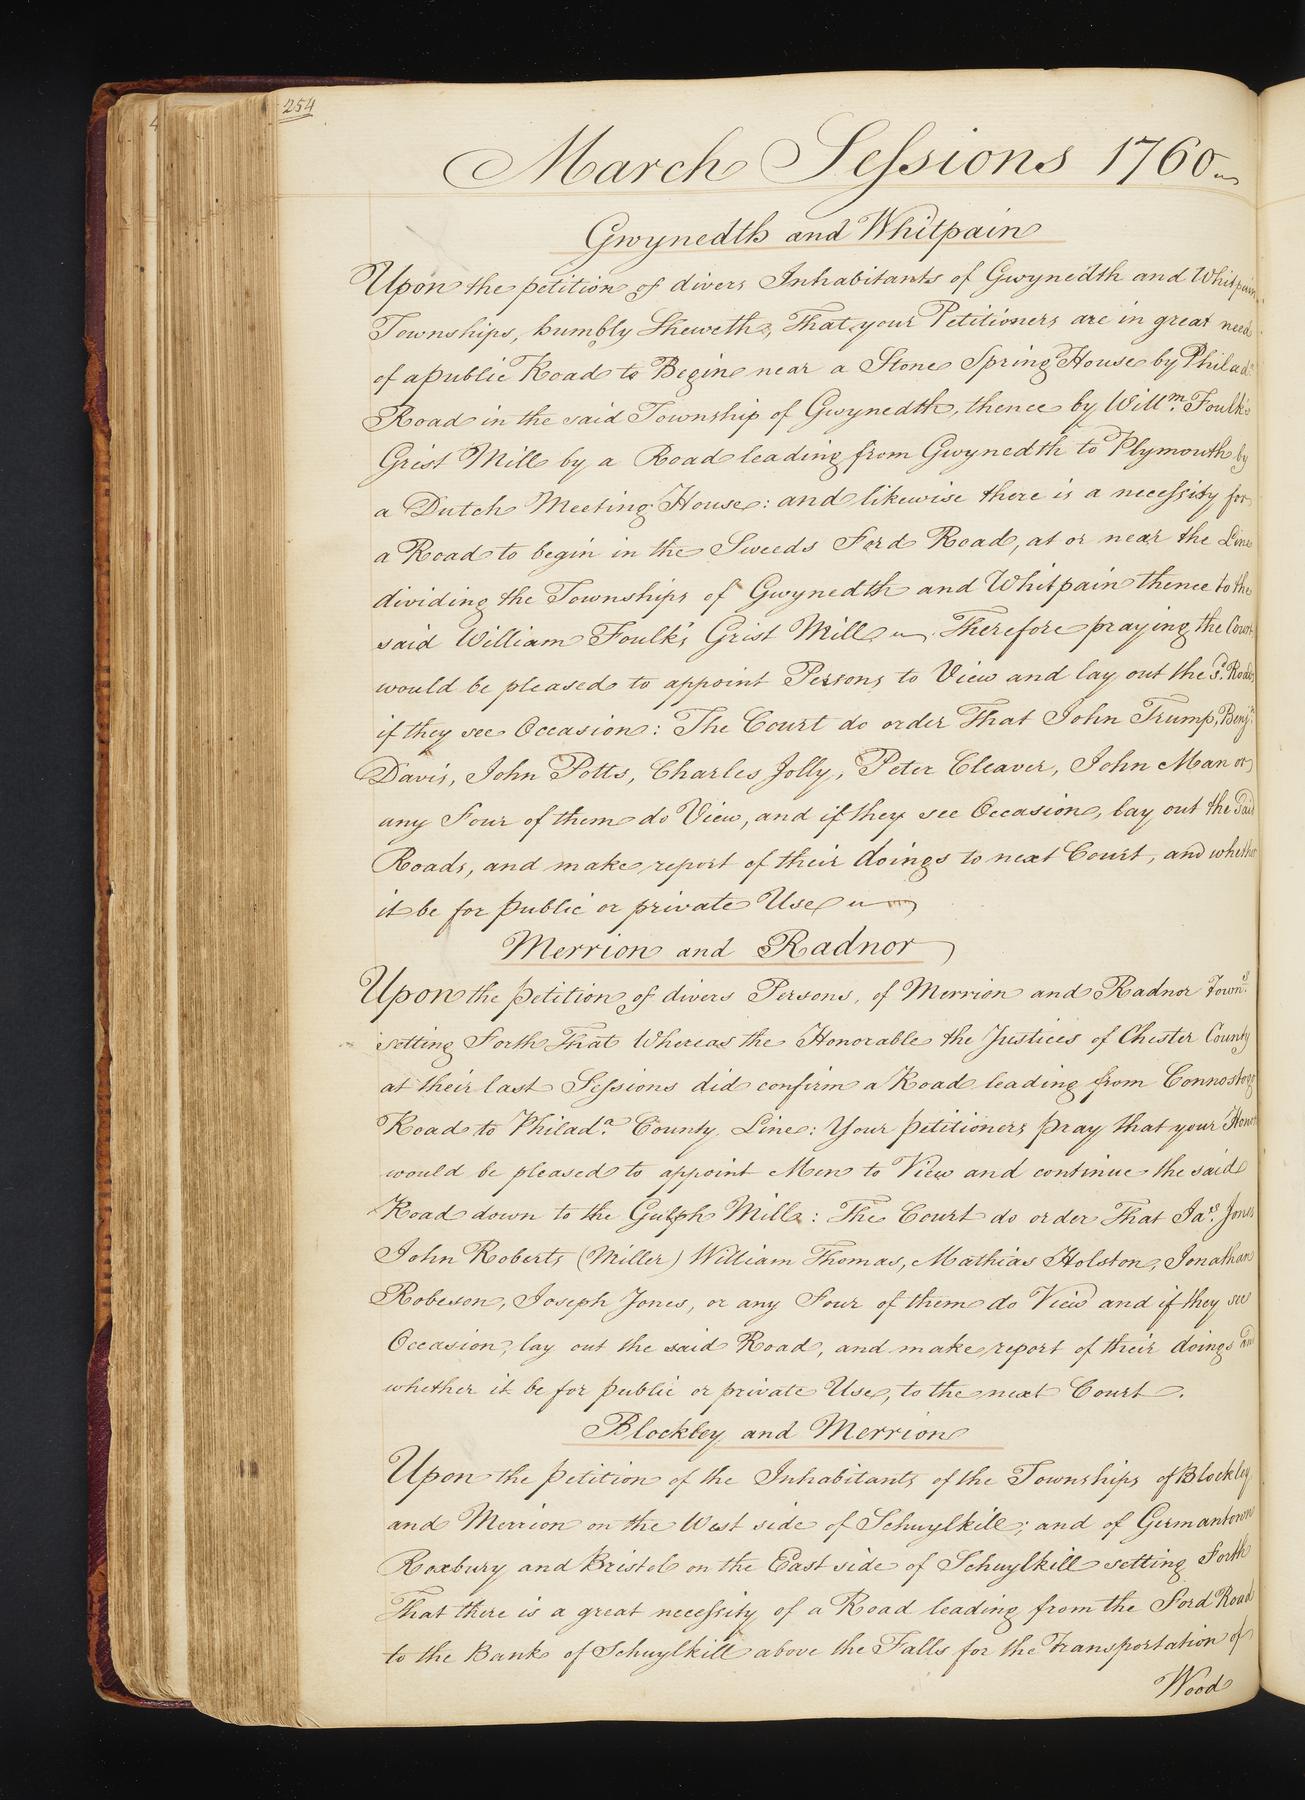 254
March Sessions 1760
Gwynedth and Whitpain
Upon the petition of divers Inhabitants of Gwynedth and Whitpain
Townships, humbly Sheweth, That your Petitioners are in great need
of a public Road to Begin near a Stone Spring House by Philada.
Road in the said Township of Gwynedth, thence by Willm. Foulk's
Grist Mill by a Road leading from Gwynedth to Plymouth by
a Dutch Meeting House: and likewise there is a necessity for
a Road to begin in the Sweeds Ford Road, at or near the Line
dividing the Townships of Gwynedth and Whitpain thence to the
said William Foulk's Grist Mill. Therefore praying the Court
would be pleased to appoint Persons to View and lay out the sd. Roads,
if they see Occasion: The Court do order That John Trump, Benjn.
Davis, John Potts, Charles Jolly, Peter Cleaver, John Man or
any Four of them do View, and if they see Occasion, lay out the said
Roads, and make report of their doings to next Court, and whether
it be for public or private Use
Merrion and Radnor
Upon the petition of divers Persons, of Merrion and Radnor Towns.
setting Forth That Whereas the Honorable the Justices of Chester County
at their last Sessions did confirm a Road leading from Connostoga
Road to Philada. County Line: Your petitioners pray that your Honors
would be pleased to appoint Men to View and continue the said
Road down to the Gulph Mill: The Court do order That Jas. Jones
John Roberts (Miller) William Thomas, Mathias Holston, Jonathan
Robeson, Joseph Jones, or any Four of them do View and if they see
Occasion, lay out the said Road, and make report of their doings and
whether it be for public or private Use, to the next Court.
Blockley and Merrion
Upon the petition of the Inhabitants of the Townships of Blockley
and Merrion on the West side of Schuylkill; and of Germantown
Roxbury and Bristol on the East side of Schuylkill setting Forth
That there is a great necessity of a Road leading from the Ford Road
to the Bank of Schuylkill above the Falls for the Transportation of
Wood